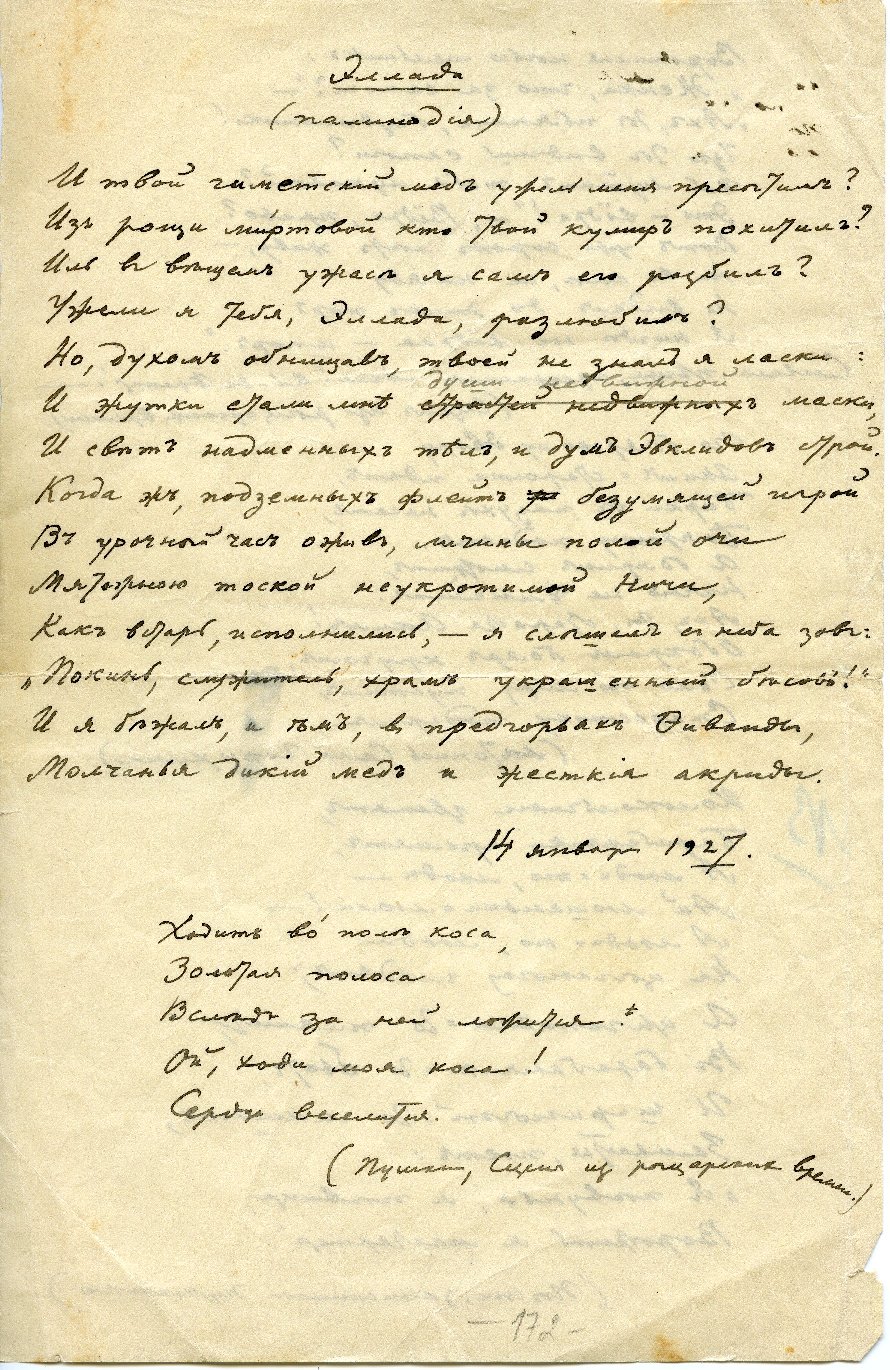 Эллада
(палинодія)
И твой гиметскій медъ ужель меня пресытилъ?
Изъ рощи миртовой кто твой кумиръ похитилъ?
Иль въ вѣщемъ ужасѣ я самъ его разбилъ?
Ужели я тебя, Эллада, разлюбилъ?
Но, духомъ обнищавъ, твоей не зналъ я ласки:
души недвижной
И жутки стали мнѣ страстей недвижныхъ маски,
И свѣтъ надменныхъ тѣлъ, и думъ Эвклидовъ строй.
Когда жъ, подземныхъ флейтъ безумящей игрой
Въ урочный часъ оживъ, личины полой очи
Мятежною тоской неукротимой Ночи,
Какъ встарь, исполнились, — я слышалъ съ неба зовъ:
„Покинь, служитель, храмъ украшенный бѣсовъ!"
И я бѣжалъ, и ѣмъ, въ предгорьахъ Ѳиваиды,
Молчанья дикій медъ и жесткія акриды.
14 январ 1927.
Ходитъ во́ полѣ коса,
Золотая полоса
Вслѣдъ за ней ложится.
Ой, ходи моя коса!
Сердце веселится.
(Пушкин, Сцены из рыцарских времен.)
— 172 -